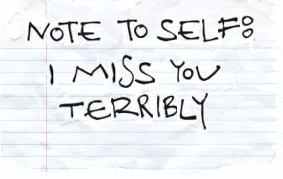 NOTE TO SELF:
I MISS YOU
TERRIBLY